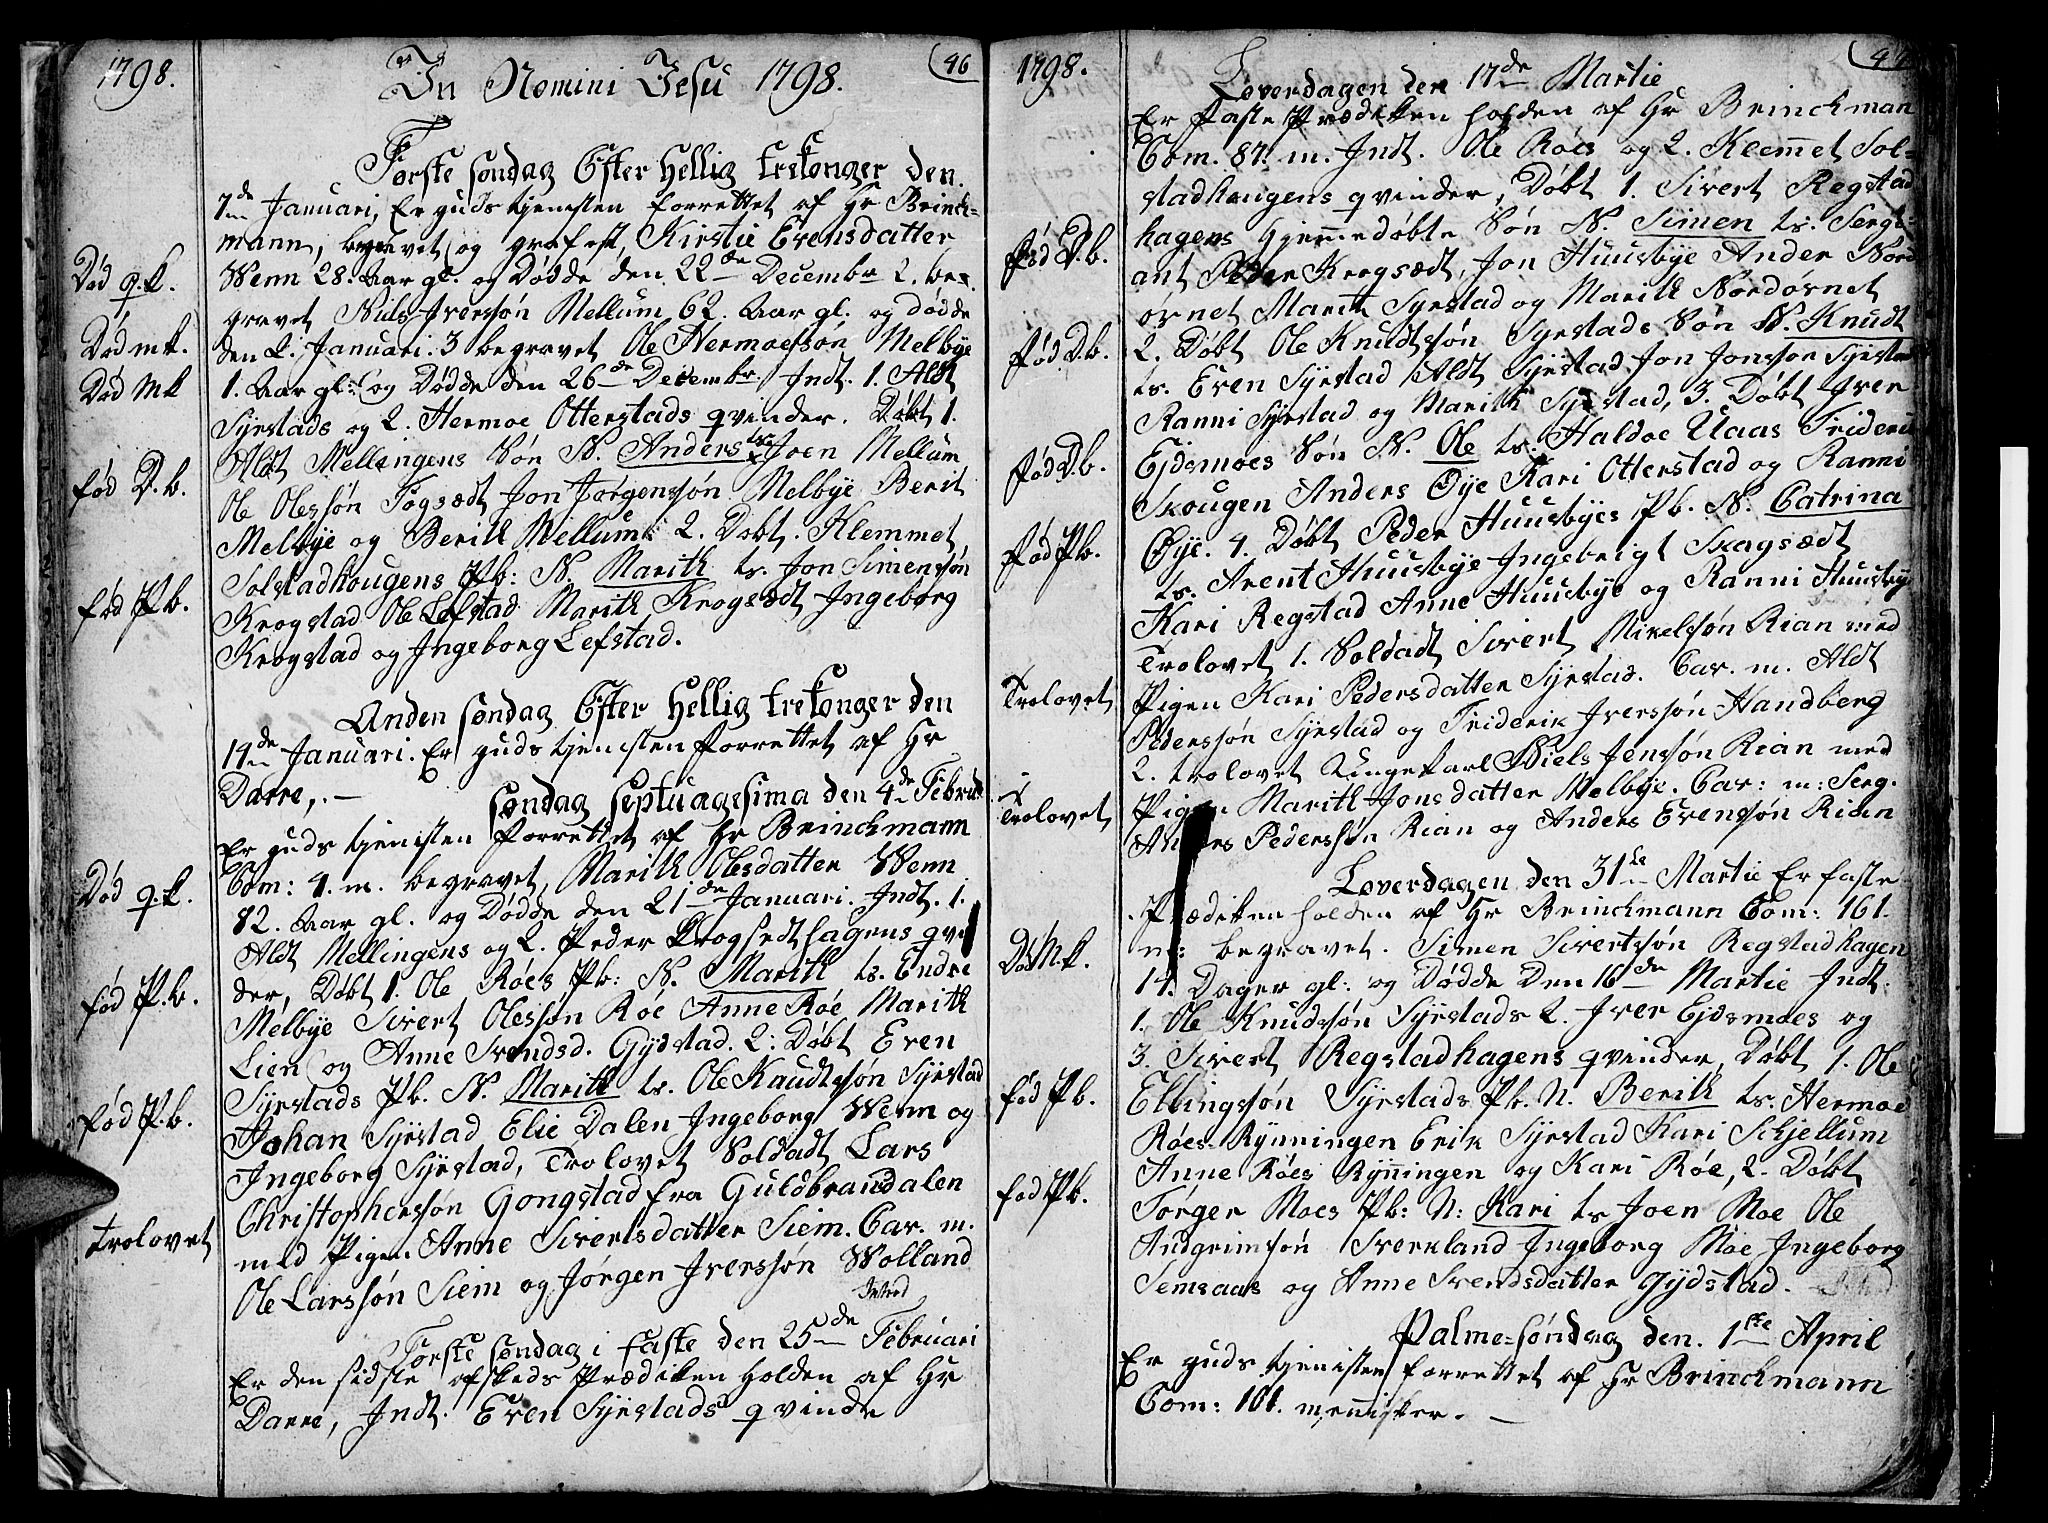 1798.
46
In Nomini Jesu 1798.
Første søndag Efter Hellig trekonger den
7de Januari, Er guds tjenesten forrettet af Hr Brinch-
mann, begravet og grafest, Kirstie Evensdatter
Wenn 28. Aar gl. og Døde den 22de Decembr 2. be-
Død q.k.
gravet Niels Iversøn Mellum 62. Aar gl. og døde
Død m k.
den Januari. 3 begravet Ole Hermoesøn Melbye
Død Mk
1. Aar gl: og Døde den 26de Decembr. Indt. 1. Aldt
Syrstads og 2. Hermoe Otterstads qvinder. Døbt 1.
Aldt Mellingens Søn N. Anders ts. Joen Mellum
fød D.b.
Ole Olessøn Fogsædt Jon Jørgenssøn Melbye Berit
Melbye og Berith Mellum 2. Døbt. Klemmet
Solstadhougens Pb: N. Marith ts. Jon Simensøn
fød P.b.
Krogstad Ole Lefstad Marith Krogsædt Ingeborg
Krogstad og Ingeborg Lefstad.
Anden søndag Efter Hellig trekonger den
14de Januari. Er guds tjenesten forrettet af Hr
Darre,. —
søndag septuagesima den 4de Februari
Er guds tjenisten forrettet af Hr Brinchmann
Com: 4. m. begravet, Marith Olesdatter Wenn
Død q.k.
82. Aar gl. og Døde den 21de Januari. Indt. 1.
Aldt Mellingens og 2. Peder Krogsedthagens qvin
der, Døbt 1. Ole Røes Pb: N. Marith ts. Endre
fød P.b.
Melbye Sivert Olessøn Røe Anne Røe Marith
Lien og Anne Svendsd. Gydstad. 2. Døbt Even
Syrstads Pb. N. Marith ts. Ole Knudtsøn Syrstad
fød P.b.
Johan Syrstad Elie Dalen Ingeborg Wenn og
Ingeborg Syrstad, Trolovet Soldadt Lars
Christophersøn Gongstad fra Guldbrandalen
trolovet
med Pigen Anne Sivertsdatter Siem. Cav. m.
Ole Larssøn Siem og Jørgen Iverssøn Wolland
Første søndag i faste den 25de Februari
Er den sidste afskeds Prædiken holden af Hr
Darre, Indt. Even Syrstads qvinde
1798.
47
Løverdagen den 17de Martie
Er faste Prædiken holden af Hr Brinchman
Com. 87. m. Indt. Ole Røes og 2. Klemmet Sol-
stadhougens qvinder, Døbt 1. Sivert Regstad
hagens hjemmedøbte Søn N. Simen ts. Sergi-
Fød D.b.
ant Peder Krogsædt, Jon Huusbye Ander Nord
ørnet Marith Syrstad og Marith Nordørnet
2. Døbt Ole Knudtsøn Syrstads Søn N. Knudt
Fød D.b.
ts. Even Syrstad Aldt Syrstad Jon Jonsson Syrstad
Ranni Syrstad og Marith Syrstad, 3. Døbt Iver
Ejdsmoes Søn N. Ole ts. Haldoe Uaas Friderik
Fød D.b.
Skougen Anders Øye Kari Otterstad og Ranni
Øye. 4. Døbt Peder Huusbyes Pb. N. Catrina
Fød Pb.
ts. Arent Huusbye Ingebrigt Skagsædt
Kari Regstad Anne Huusbye og Ranni Huusbye
Trolovet 1. Soldadt Sivert Mikelsøn Rian med
Trolovet
Pigen Kari Pedersdatter Syrstad. Cav. m. Aldt
Pedersøn Syrstad og Friderik Iverssøn Handberg
2. trolovet Ungekarl Niels Jenssøn Rian med
Trolovet
Pigen Marith Jonsdatter Melbye. Cav: m: Serg.
Anders Pederssøn Rian og Anders Evensøn Rian
Løverdagen den 31te Martie Er faste
Prædiken holden af Hr Brinchmann Com: 161.
m: begravet. Simen Sivertsøn Regstadhagen
Død M.k.
14. Dager gl: og Døde Den 16de Martie Indt.
1. Ole Knudsøn Syrstads 2. Iver Ejdsmoes og
3. Sivert Regstadhagens qvinder, Døbt 1. Ole
Ellingssøn Syrstads Pb. N. Berith ts. Hermoe
fød Pb.
Røes Rynningen Erik Syrstad Kari Schjellum
Anne Røes Rynningen og Kari Røe, 2. Døbt
Tørger Moes Pb: N: Kari ts Joen Moe Ole
fød Pb.
Andgrimsøn Sverkland Ingeborg Moe Ingeborg
Semsaas og Anne Svendsdatter Gydstad.
Palme-søndag den. 1ste April
Er guds tjenisten forrettet af Hr Brinchmann
Com: 101. mennisker. —